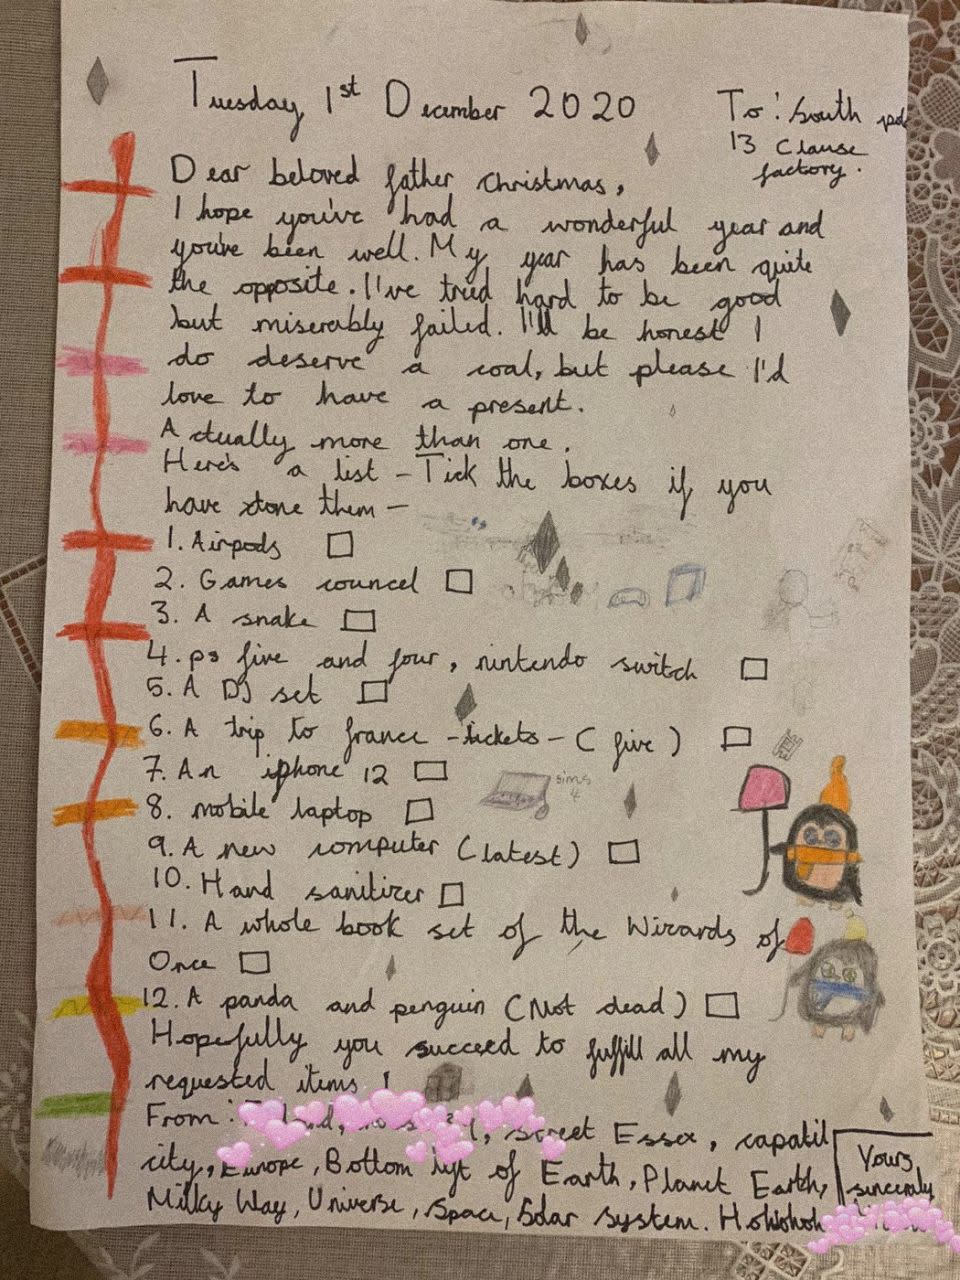 Tuesday 1st December 2020
To: South pole
13 Clause
factory.
Dear beloved father christmas,
I hope you've had a wonderful year and
you've been well. My year has been quite
the opposite. I've tried hard to be good
but miserably failed. I'll be honest I
do deserve a coal, but please I'd
love to have a present.
Actually more than one.
Here's a list - Tick the boxes if you
have done them -
1. Airpods
2. Games councel
3. A snake
4. ps five and four, nintendo switch
5. A DJ set
6. A trip to france - tickets - (five)
7. An iphone 12
sims
4
8. mobile laptop
9. A new computer (latest)
10. Hand sanitizer
11. A whole book set of the Wizards of
Once
12. A panda and penguin (Not dead)
Hopefully you succeed to fulfill all my
requested items!
From: street Essex, capatil
city, Europe, Bottom left of Earth, Planet Earth,
Milky Way, Universe, Space, Solar system. Hohohoh
Yours
sincerely